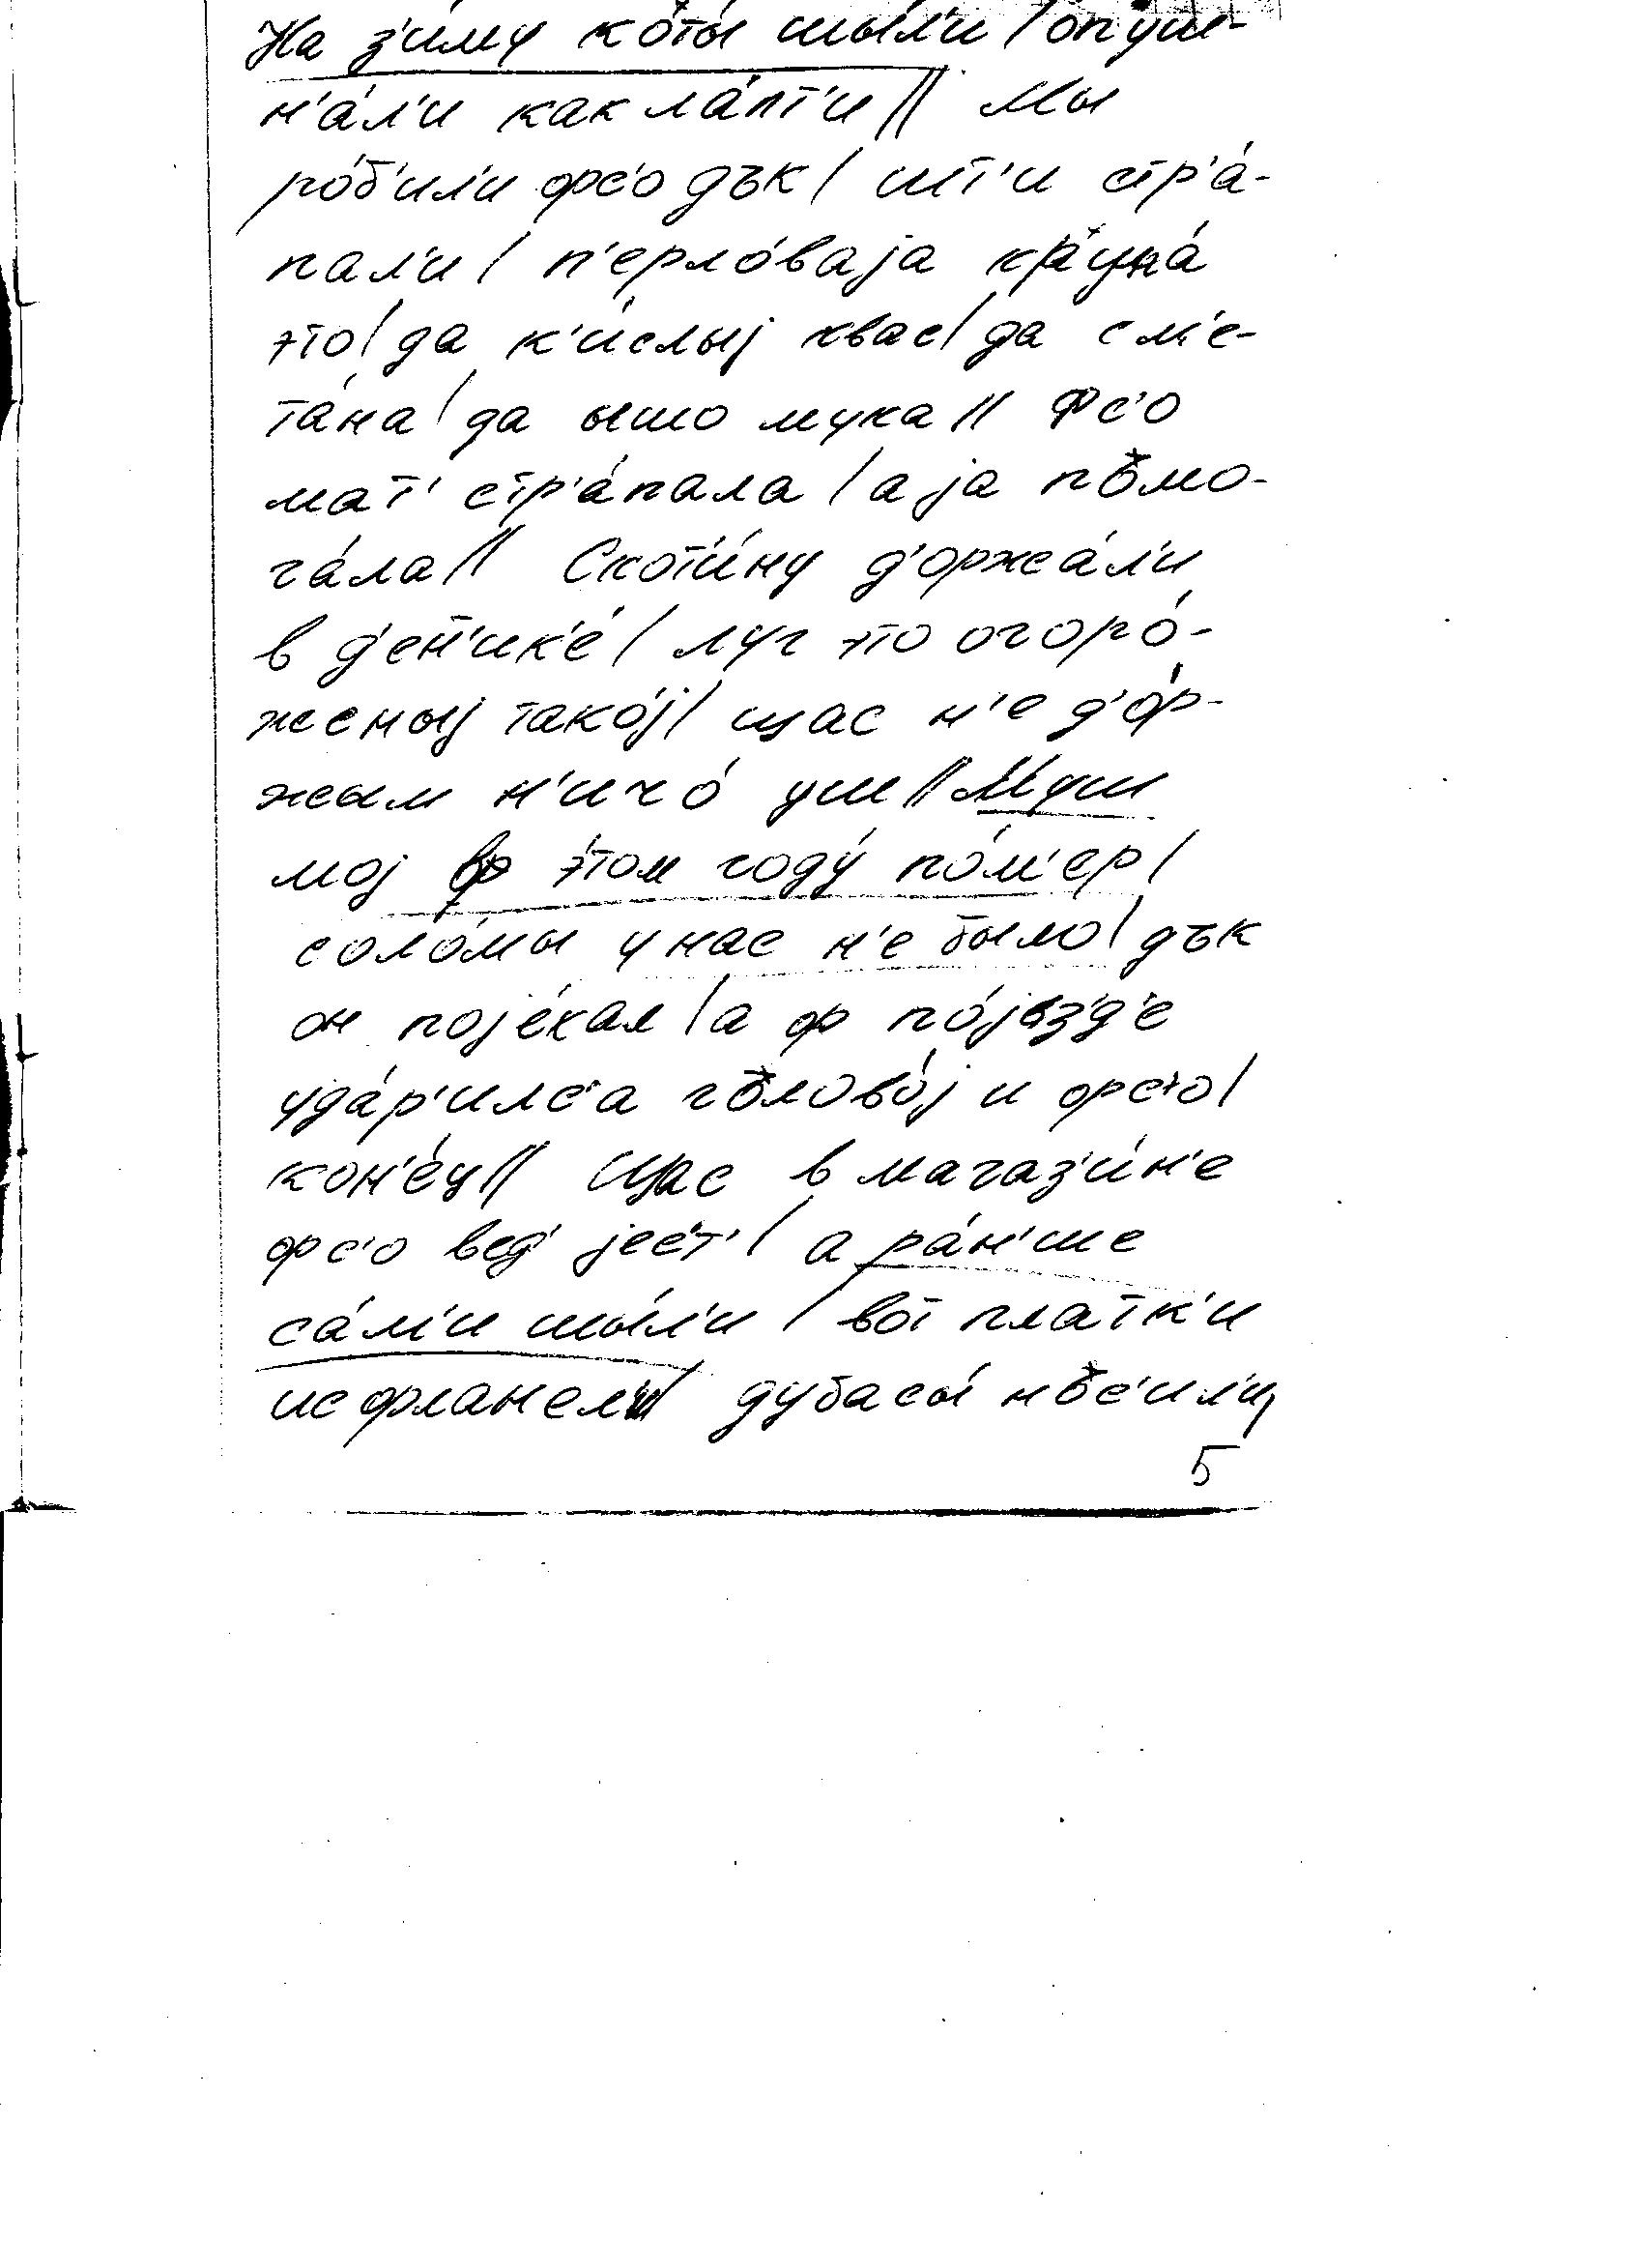 На з'и́му коты́ шы́л'и / опуш-
н'а́л'и как ла́пт'и // Мы
ро́б'ил'и фс'о дък / шт'и стр'а́-
пал'и / п'ерло́ваjа крупа́
это / да к'и́слыj квас / да см'е-
та́на / да ышо мука // Фс'о
мат' стр'а́пала / а jа пъмо-
га́ла // Скот'и́ну д'оржа́л'и
в д'ен'ик'е́ / луг это огоро́-
женыj тако́j / щас н'е д'о́р-
жым н'ичо́ уш // Муш
моj ф э́том году́ по́м'ер /
соло́мы у нас н'е было / дък
он поjе́хал / а ф по́jезд'е
уда́р'илс'а гълово́j и фс'о /
кон'е́ц // Щас в магаз'и́н'е
фс'о вед' jес'т' / а ра́н'ше
са́м'и шы́л'и / вот платк'и
ис фланел'и / дубасы́ нъс'ил'и,
5